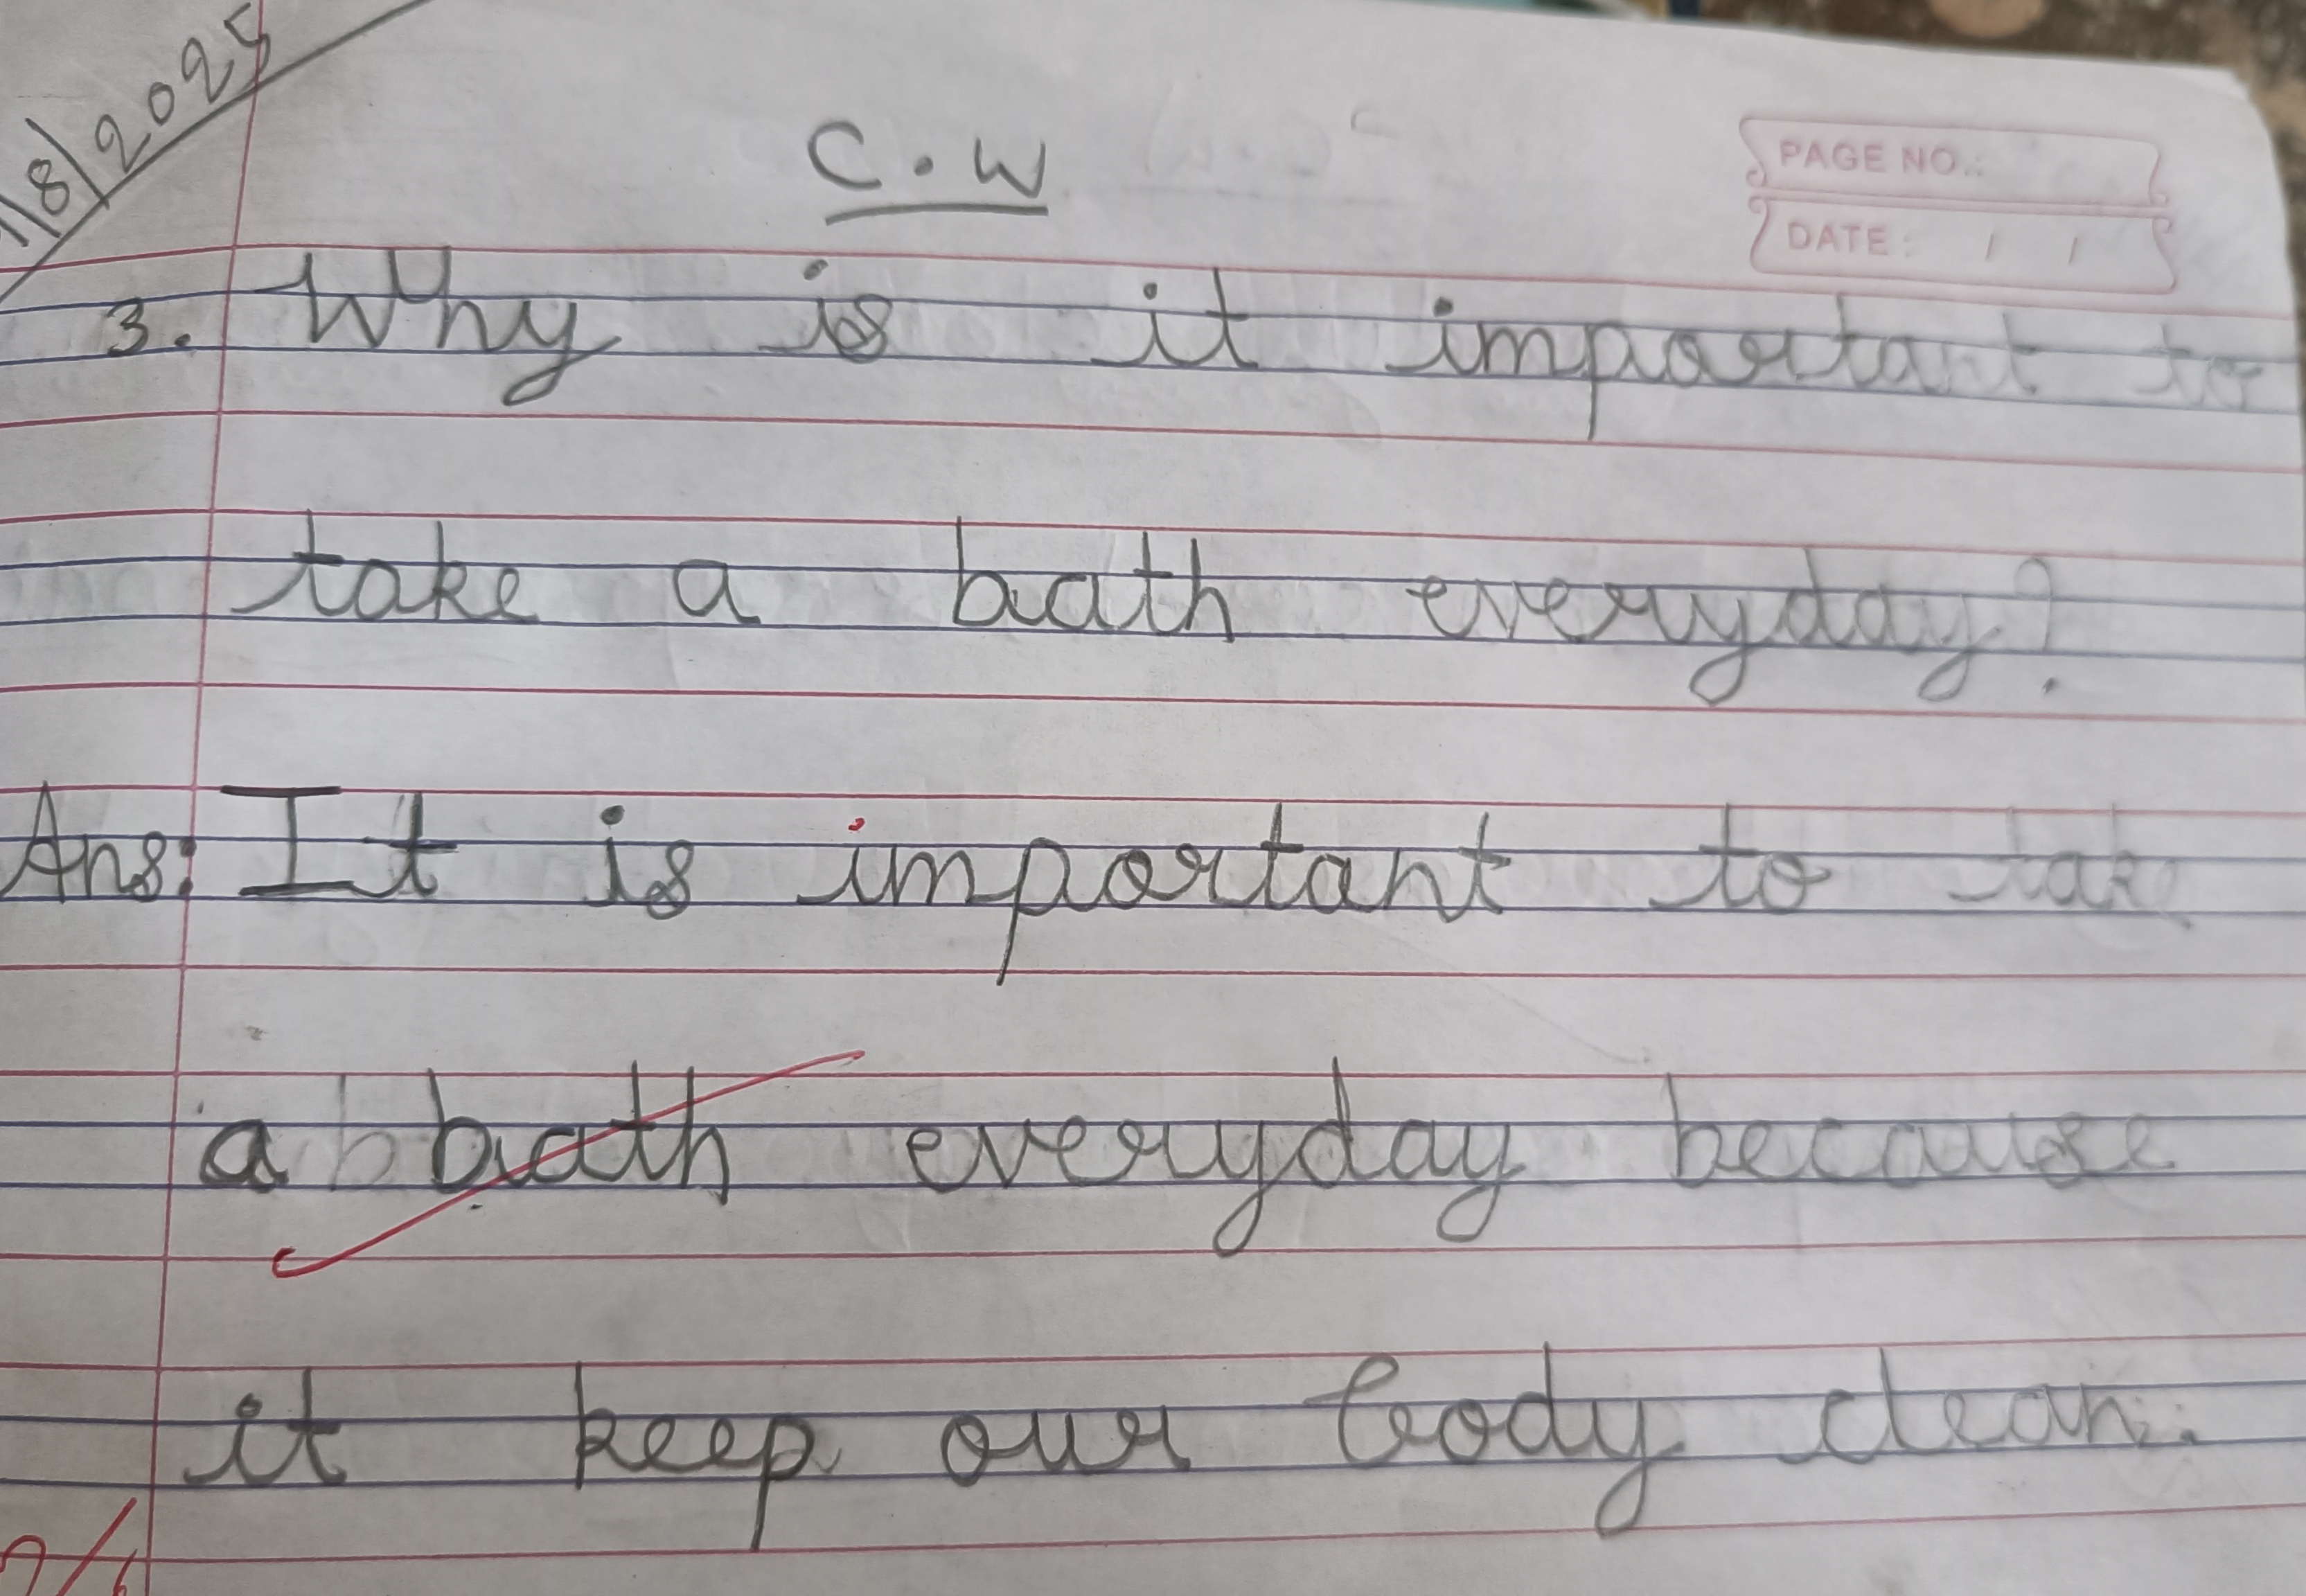 /8/2025
C.W
PAGE NO.:
DATE: / /
3. Why is it important to
take a bath everyday?
Ans: It is important to take
a bath everyday because
it keep our body clean.